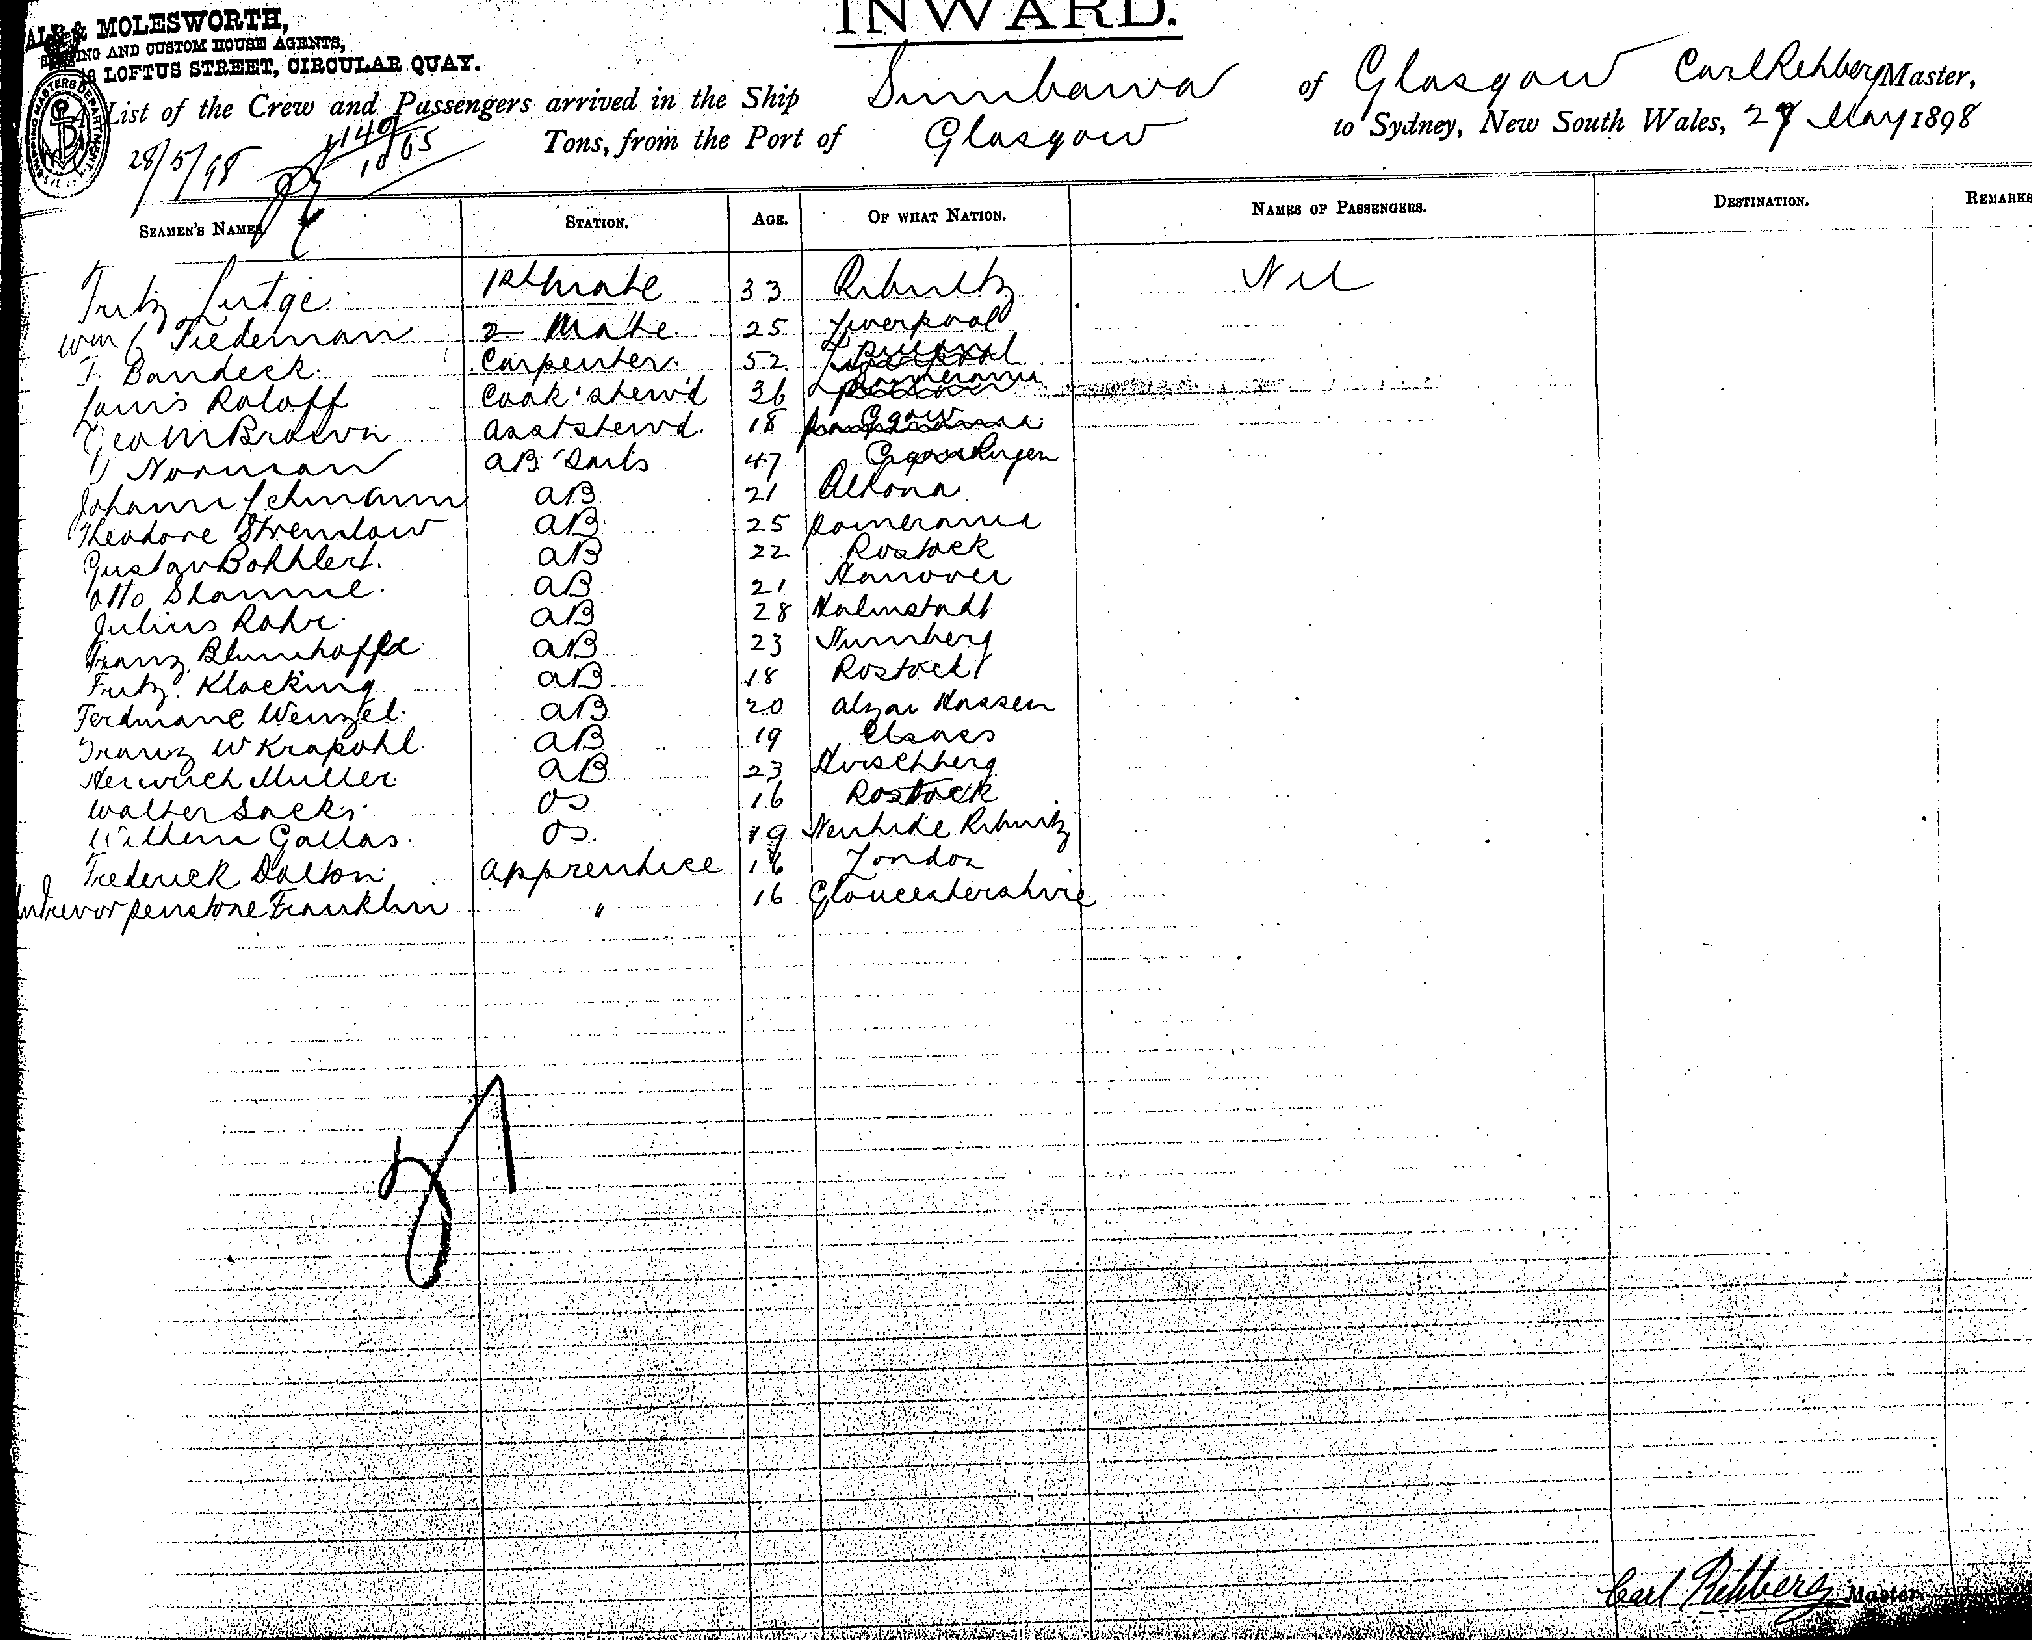 INWARD.
& MOLESWORTH,
AND CUSTOM HOUSE AGENTS,
LOFTUS STREET, CIRCULAR QUAY.
List of the Crew and Passengers arrived in the Ship Sumbawa of Glasgow Carl Rehberg Master,
Tons, from the Port of Glasgow to Sydney, New South Wales, 27 May 1898
28/5/98
SEAMEN'S NAMES STATION. AGE. OF WHAT NATION. NAMES OF PASSENGERS. DESTINATION. REMARKS
Fritz Lutge 1st Mate 33 Ribnitz Nil
Wm Tiedeman 2 Mate 25 Liverpool
Bandeck Carpenter 52
Louis Roloff Cook & stew'd 36
Geo M Brown asst stew'd 18
Norman AB Sails 47
Johann Lehmann AB 21 Altona
Theodore Stremlow AB 25 Pomerania
Gustav Bohhlert AB 22 Rostock
Otto Stamme AB 21 Hanover
Julius Rohr AB 28 Halmstadt
Franz AB 23 Nurnberg
Fritz Klocking AB 18 Rostock
Wenzel AB 20
Franz W Krapohl AB 19 Elsass
Heinrich Muller AB 23 Hirschberg
Walter Sacks OS 16 Rostock
Wilhem Gallas OS 19 Ribnitz
Frederick Dalton apprentice 16 London
Trevor Penstone Franklin " 16 Gloucestershire
Carl Rehberg Master